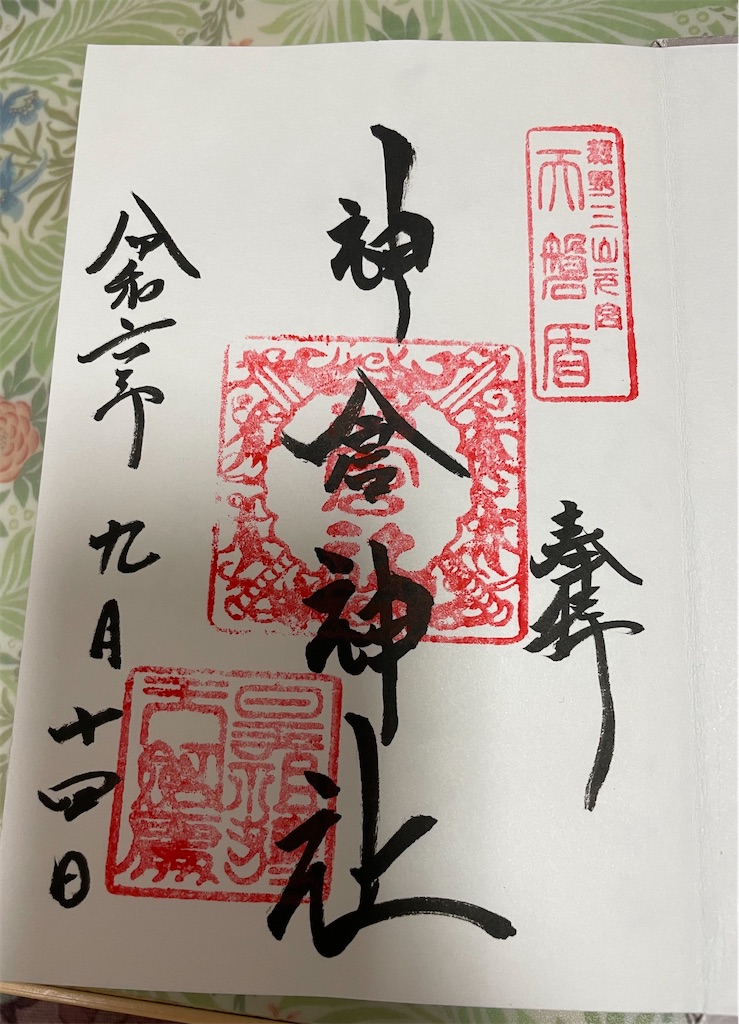 熊野三山元宮
天磐盾
奉拝
神倉神社
令和六年九月十四日